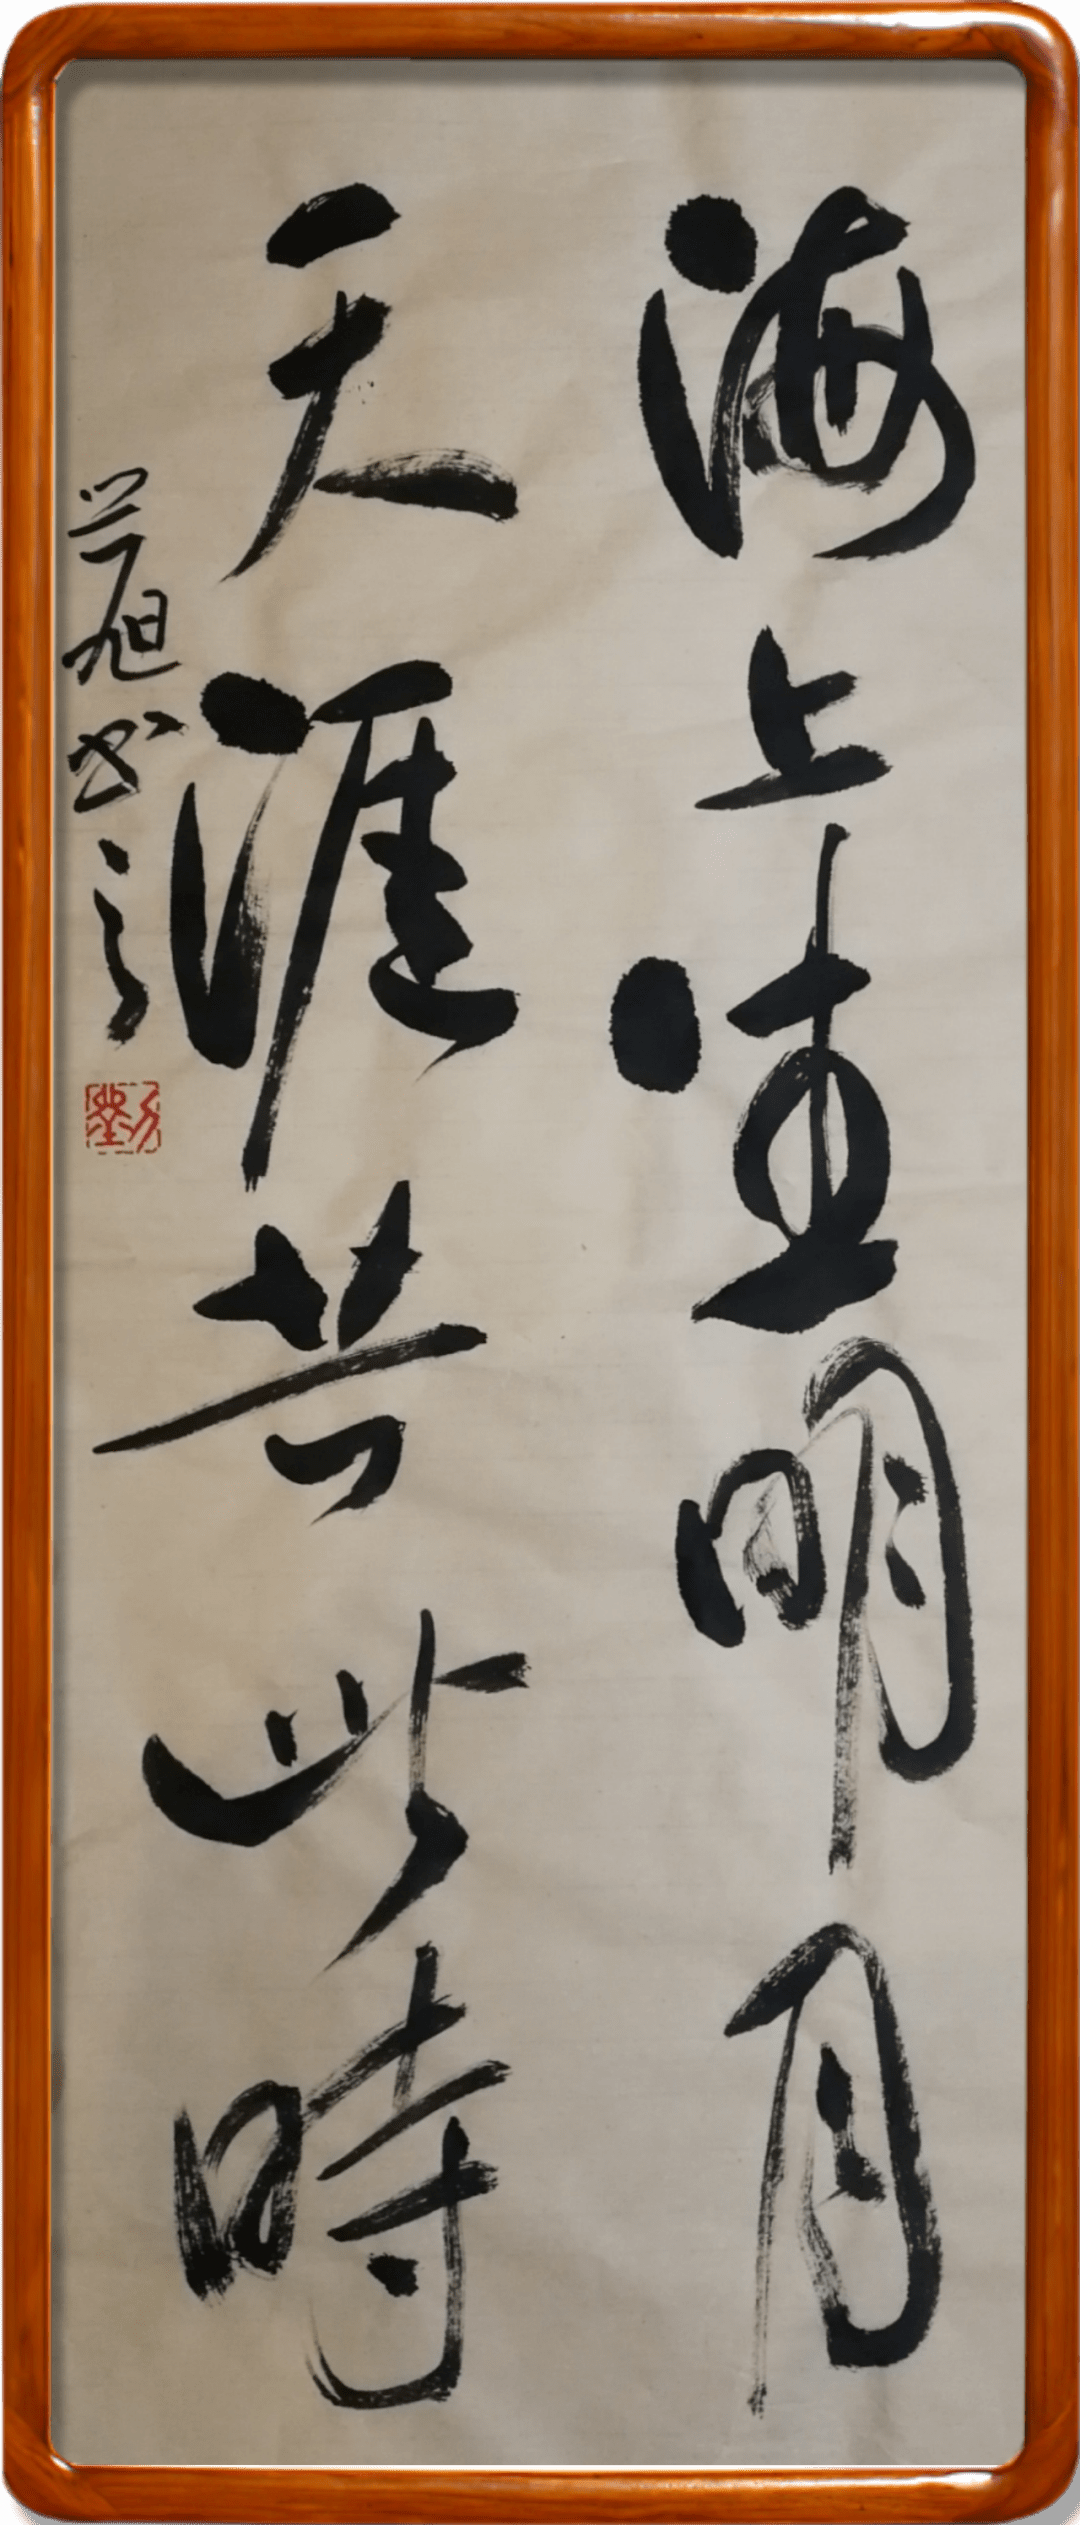 海上生明月
天涯共此時
旭书
劉